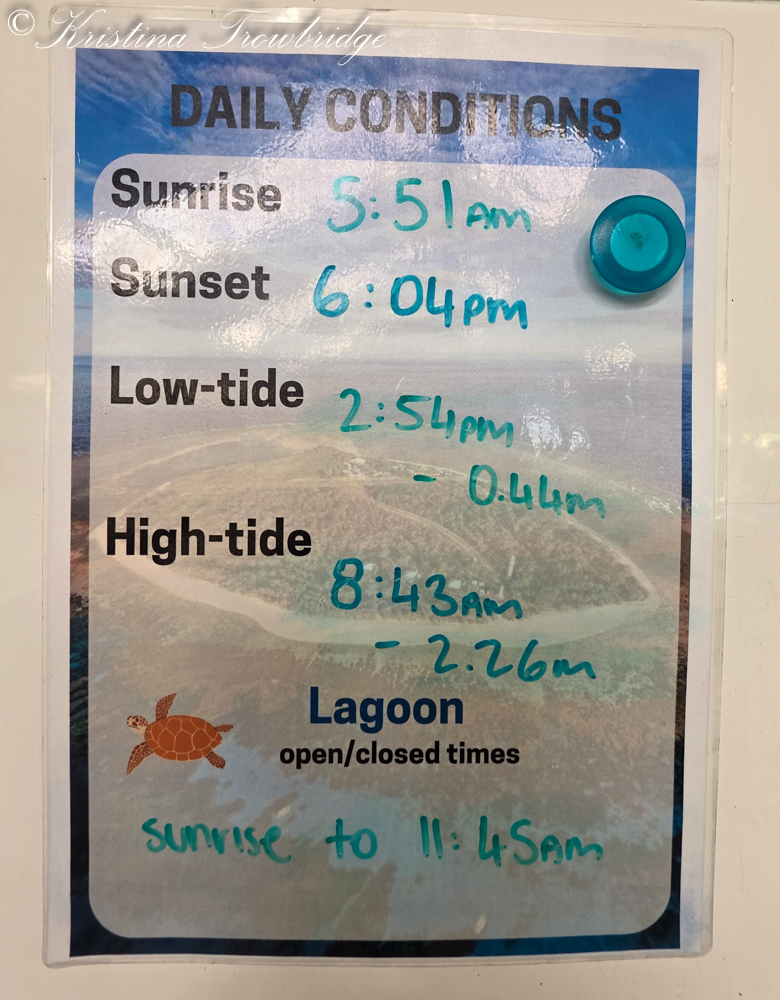 © Kristina Trowbridge
DAILY CONDITIONS
Sunrise 5:51AM
Sunset 6:04PM
Low-tide 2:54PM
- 0.44m
High-tide
8:43AM
- 2.26m
Lagoon
open/closed times
sunrise to 11:45AM